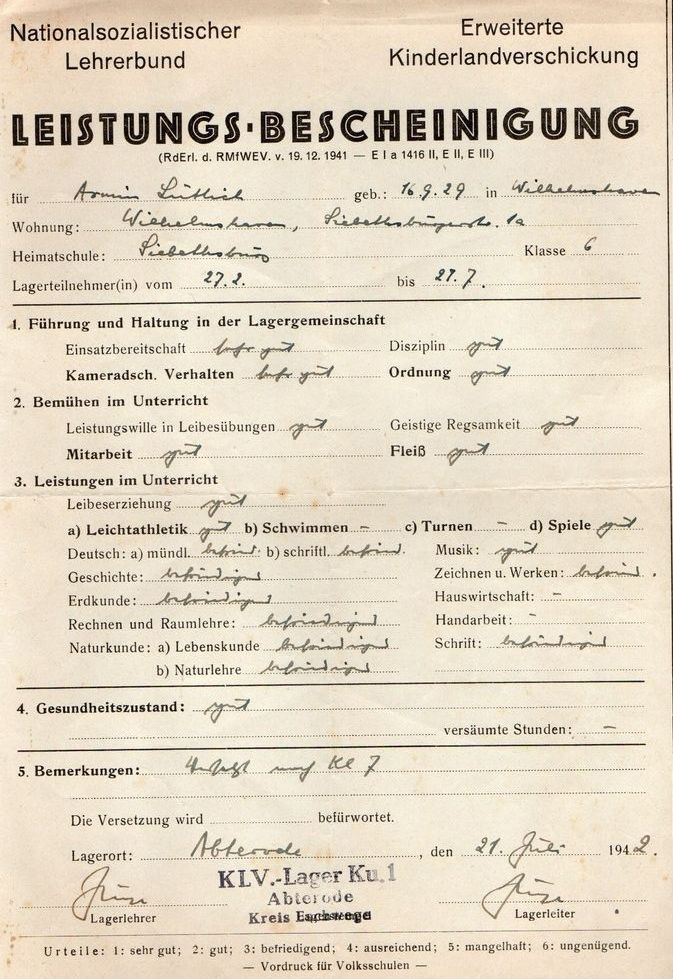 Nationalsozialistischer Lehrerbund
Erweiterte Kinderlandverschickung
LEISTUNGS-BESCHEINIGUNG
(RdErl. d. RMfWEV. v. 19. 12. 1941 — E I a 1416 II, E II, E III)
für Armin Lüttich geb.: 16.9.29 in Wilhelmshaven
Wohnung: Wilhelmshaven, Siebethsburgerstr. 1a
Heimatschule: Siebethsburg Klasse 6
Lagerteilnehmer(in) vom 27.2. bis 27.7.
1. Führung und Haltung in der Lagergemeinschaft
Einsatzbereitschaft sehr gut Disziplin gut
Kameradsch. Verhalten sehr gut Ordnung gut
2. Bemühen im Unterricht
Leistungswille in Leibesübungen gut Geistige Regsamkeit gut
Mitarbeit gut Fleiß gut
3. Leistungen im Unterricht
Leibeserziehung gut
a) Leichtathletik gut b) Schwimmen – c) Turnen – d) Spiele gut
Deutsch: a) mündl. befried. b) schriftl. befried. Musik: gut
Geschichte: befriedigend Zeichnen u. Werken: befried.
Erdkunde: befriedigend Hauswirtschaft: –
Rechnen und Raumlehre: befriedigend Handarbeit: –
Naturkunde: a) Lebenskunde befriedigend Schrift: befriedigend
b) Naturlehre befriedigend
4. Gesundheitszustand: gut
versäumte Stunden: –
5. Bemerkungen: Versetzt nach Kl 7
Die Versetzung wird befürwortet.
Lagerort: Abterode, den 21. Juli 1942.
KLV.-Lager Ku. 1
Abterode
Kreis Eschwege
Lagerlehrer Lagerleiter
Urteile: 1: sehr gut; 2: gut; 3: befriedigend; 4: ausreichend; 5: mangelhaft; 6: ungenügend.
— Vordruck für Volksschulen —